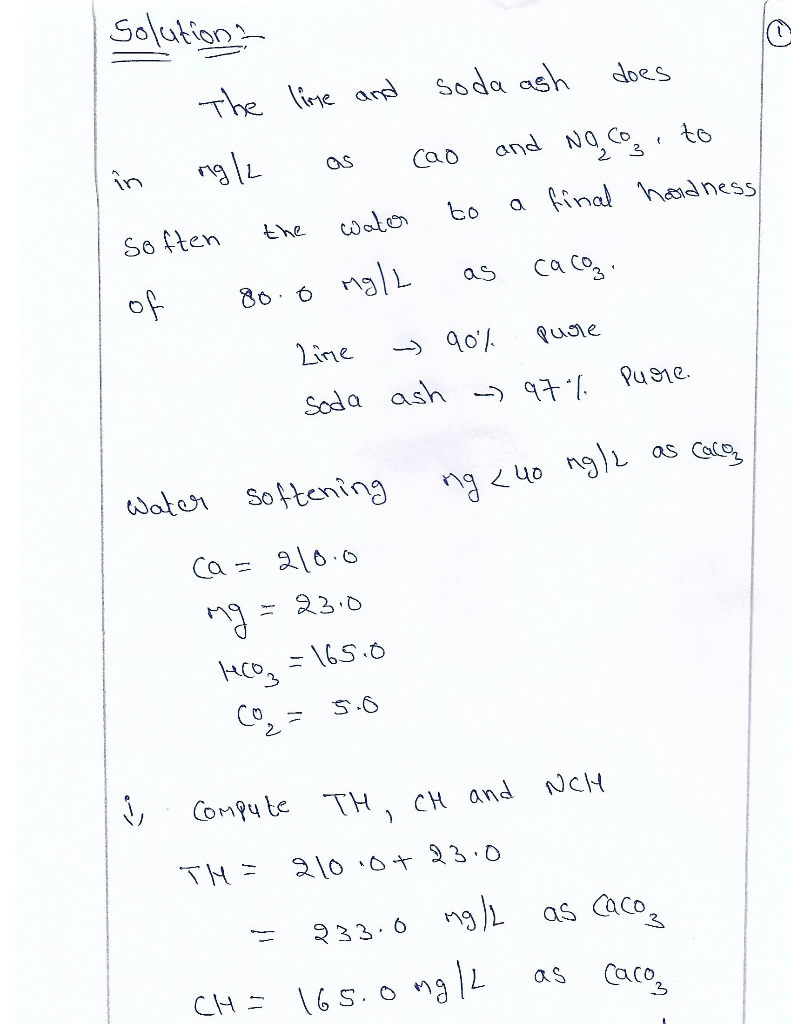 Solution:
①
The lime and soda ash does
in mg/L as CaO and Na₂CO₃, to
soften the water to a final hardness
of 80.0 mg/L as CaCO₃.
Lime → 90% pure
Soda ash → 97% pure.
Water softening mg < 40 mg/L as CaCO₃
Ca = 210.0
mg = 23.0
HCO₃ = 165.0
CO₂ = 5.0
i, Compute TH, CH and NCH
TH = 210.0 + 23.0
= 233.0 mg/L as CaCO₃
CH = 165.0 mg/L as CaCO₃